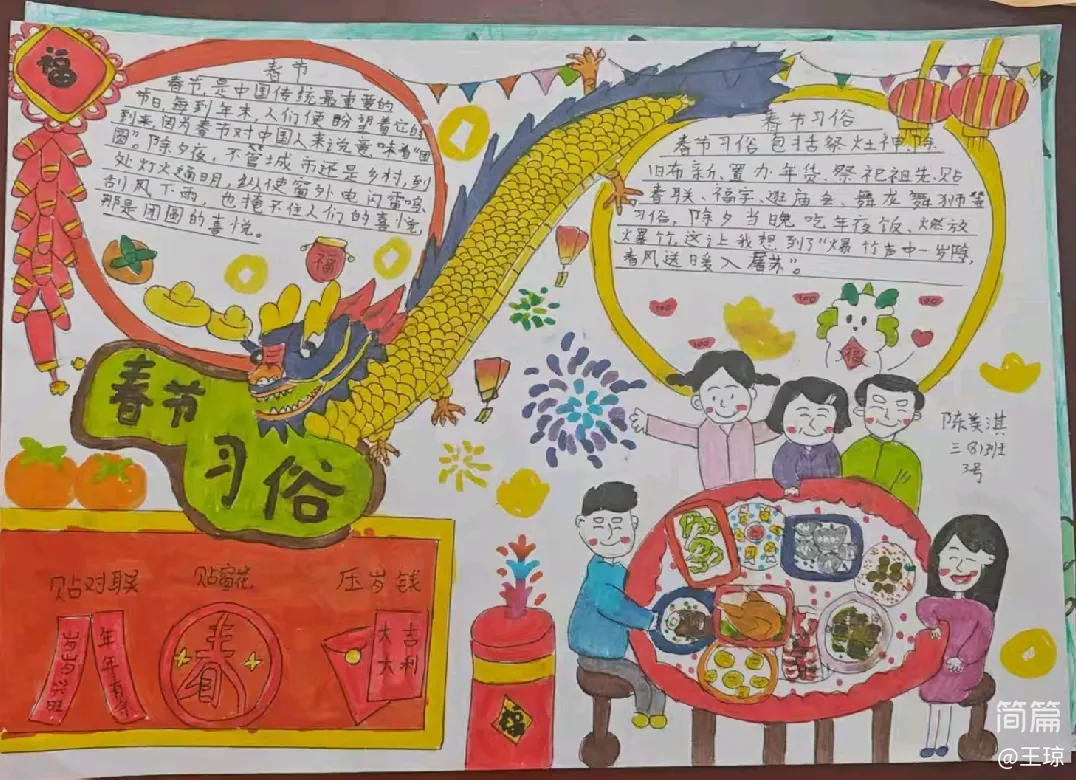 福
春节
春节是中国传统最重要的
节日每到年末,人们便盼望着它的
到来因为春节对中国人来说意味着"团
圆"。除夕夜,不管城市还是乡村,到
处灯火通明,纵使窗外电闪雷鸣
刮风下雨,也掩不住人们的喜悦,
那是团圆的喜悦。
福
春节习俗
春节习俗包括祭灶神,除
旧布新、置办年货、祭祀祖先、贴
春联、福字、逛庙会、舞龙舞狮等
习俗,除夕当晚吃年夜饭、燃放
爆竹,这让我想到了"爆竹声中一岁除,
春风送暖入屠苏"。
福
春节
习俗
陈美淇
三(8)班
3号
贴对联
贴窗花
压岁钱
年年有余
春
大吉
大利
福
简篇
@王琼